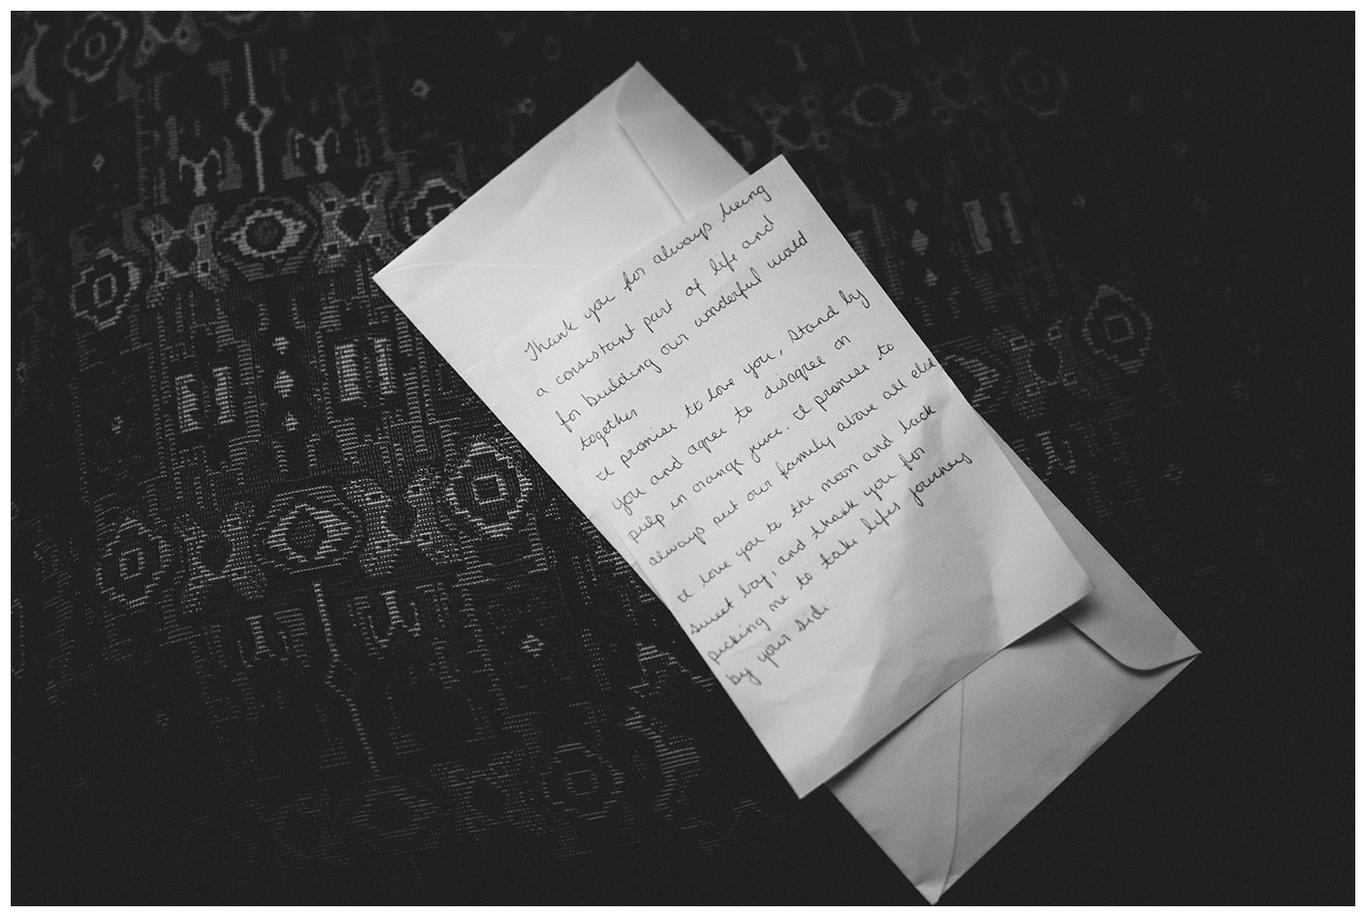 Thank you for always being
a consistant part of life and
for building our wonderful world
together.
I promise to love you, stand by
you and agree to disagree on
pulp in orange juice. I promise to
always put our family above all else
I love you to the moon and back
sweet boy, and thank you for
picking me to take lifes journey
by your side.